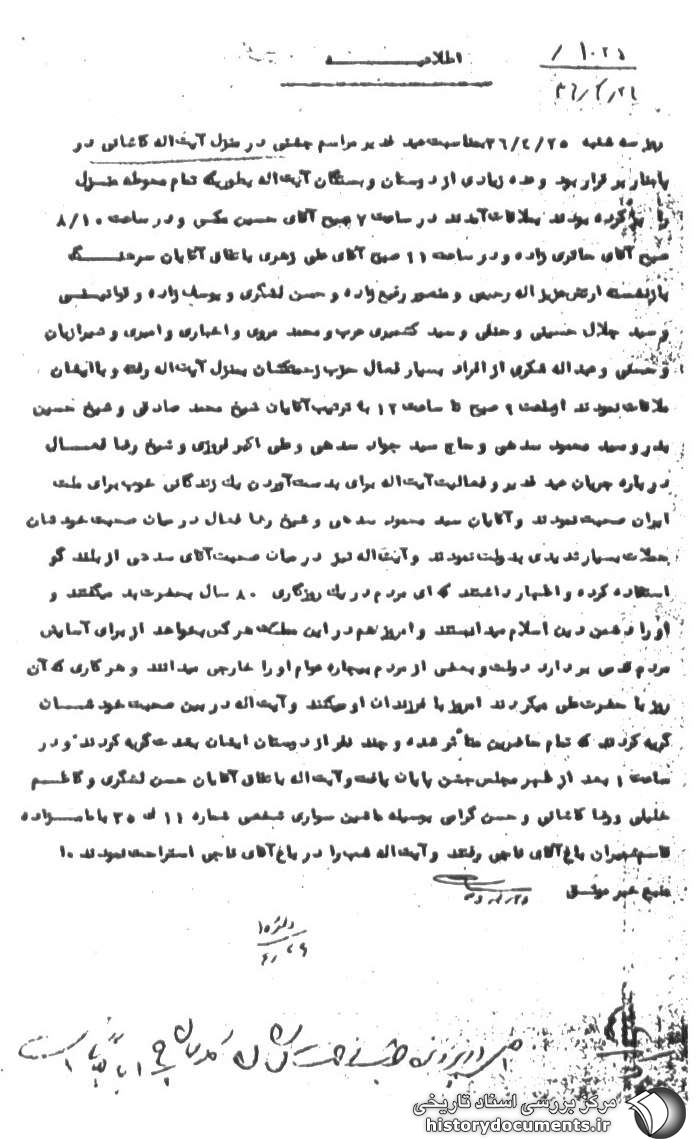 ۱۰۲۵/
اطلاعیه
۳۶/۴/۲۶
روز سه شنبه ۳۶/۴/۲۵ بمناسبت عید غدیر مراسم جشنی در منزل آیت‌اله کاشانی در
پامنار برقرار بود وعده زیادی از دوستان و بستگان آیت‌اله بطوریکه تمام محوطه منزل
را پر کرده بودند بملاقات آمدند در ساعت ۷ صبح آقای حسین مکی و در ساعت ۸/۱۰
صبح آقای حائری زاده و در ساعت ۱۱ صبح آقای علی زهری باتفاق آقایان سرهنگ
بازنشسته ارتش عزیزاله رحیمی و منصور رفیع زاده و حسن لشگری و یوسف زاده و
و سید جلال حسینی و حنفی و سید کشمیری حرب و محمد مروی و اخباری و امیری و شیرازیان
و حسنی و عبداله شکری از افراد بسیار فعال حزب زحمتکشان بمنزل آیت‌اله رفته و باایشان
ملاقات نمودند ازساعت ۹ صبح تا ساعت ۱۲ به ترتیب آقایان شیخ محمد صادقی و شیخ حسین
و سید محمود سدهی و حاج سید جواد سدهی و علی اکبر فروزی و شیخ رضا فعال
درباره جریان عید غدیر و فعالیت آیت‌اله برای بدست آوردن یك زندگانی خوب برای ملت
ایران صحبت نمودند و آقایان سید محمود سدهی و شیخ رضا فعال در میان صحبت خودشان
حملات بسیار شدیدی بدولت نمودند و آیت‌اله نیز در میان صحبت آقای سدهی از بلند گو
استفاده کرده و اظهار داشتند که ای مردم در یك روزگاری ۸۰ سال بحضرت بد میگفتند و
او را دشمن دین اسلام میدانستند و امروز هم در این مملکت هر کس بخواهد از برای آسایش
مردم قدمی بردارد دولت و بعضی از مردم بیچاره عوام او را خارجی میدانند و هر کاری که آن
روز با حضرت علی میکردند امروز با فرزندان او میکنند و آیت‌اله در بین صحبت خودشان
گریه کردند که تمام حاضرین متأثر شده و چند نفر از دوستان ایشان بشدت گریه کردند و در
ساعت ۱ بعد از ظهر مجلس جشن پایان یافت و آیت‌اله باتفاق آقایان حسن لشگری و کاظم
خلیلی و رضا کاشانی و حسن گرامی بوسیله ماشین سواری شخصی شماره ۱۱ ك ۳۵ بامامزاده
قاسم شمیران باغ آقای فاجی رفتند و آیت‌اله شب را در باغ آقای فاجی استراحت نمودند ۱۰
منبع خبر موثق
مرکز بررسی اسناد تاریخی
historydocuments.ir